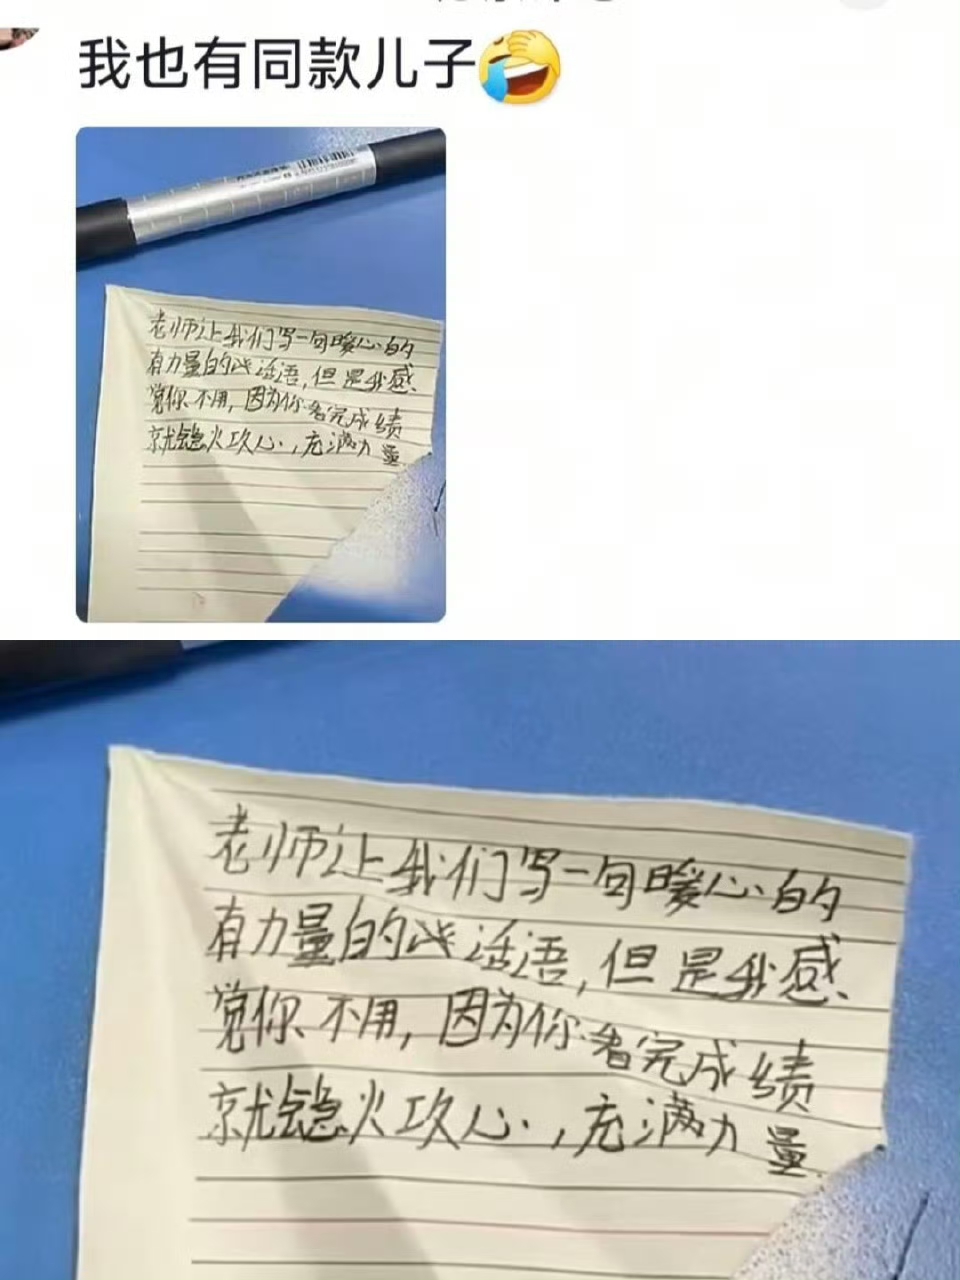 我也有同款儿子
老师让我们写一句暖心的
有力量的 话语,但是我感
觉你不用,因为你看完成绩
就会急火攻心,充满力量
老师让我们写一句暖心的
有力量的 话语,但是我感
觉你不用,因为你看完成绩
就会急火攻心,充满力量